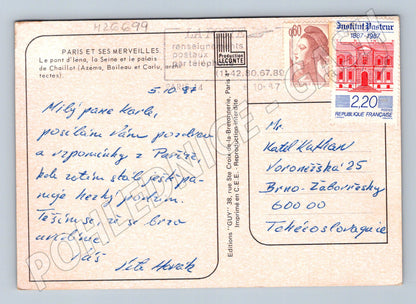 426699
PARIS ET SES MERVEILLES
Le pont d'Iena, la Seine et le palais
de Chaillot. (Azema, Boileau et Carlu, archi-
tectes)
5.10.87
Milý pane Karle,
posílám Vám pozdrav
a vzpomínky z Paříže,
kde zatím stále ještě pa-
nuje hezký podzim.
Těším se, že se brzo
uvidíme
Váš
Production
LECONTE
renseignements
postaux
par téléphone
(1) 42.80.67.89
10-87
0,60
Institut Pasteur
1887-1987
2,20
REPUBLIQUE FRANÇAISE
POSTES
Editions "GUY" 38, rue Ste Croix de la Bretonnerie, Paris
Imprimé en C.E.E. - Reproduction interdite
Mr.
Karel Kaplan
Voroněžská 25
Brno-Žabovřesky
600 00
Tchécoslovaquie
POHLEDNICE